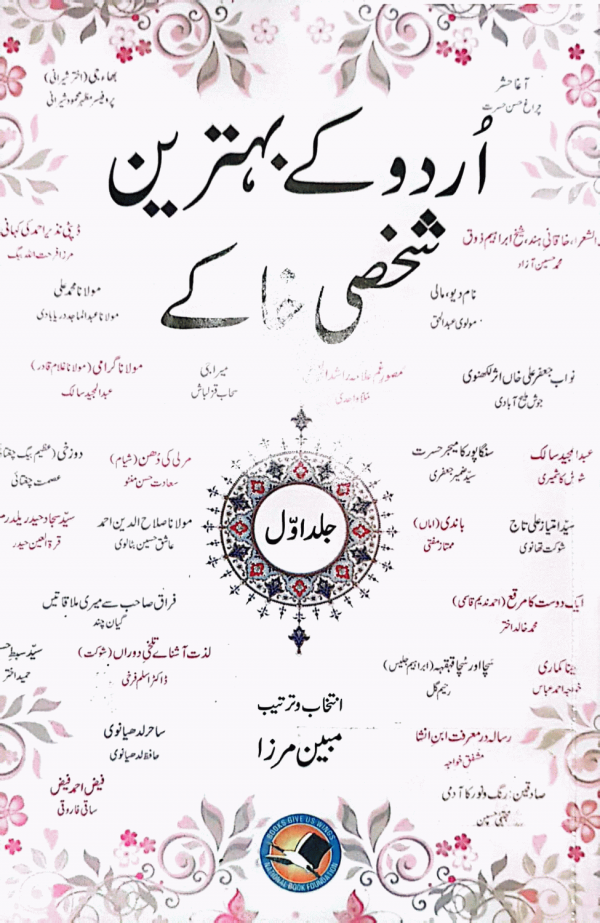 آغا حشر
چراغ حسن حسرت
بھاءجی (اختر شیرانی)
پروفیسر مظہر محمود شیرانی
اُردو کے بہترین
شخصی خاکے
الشعراء، خاقانی ہند، شیخ ابراہیم ذوق
محمد حسین آزاد
ڈپٹی نذیر احمد کی کہانی
مرزا فرحت اللہ بیگ
نام دیو، مالی
مولوی عبدالحق
مولانا محمد علی
مولانا عبدالماجد دریابادی
نواب جعفر علی خاں اثر لکھنوی
جوش ملیح آبادی
مصور غم علامہ راشد الخیری
ملا واحدی
میرا جی
سحاب قزلباش
مولانا گرامی (مولانا غلام قادر)
عبدالمجید سالک
عبدالمجید سالک
شورش کاشمیری
سنگاپور کا میجر حسرت
سید ضمیر جعفری
مرلی کی دُھن (شیام)
سعادت حسن منٹو
دوزخی (عظیم بیگ چغتائی
عصمت چغتائی
سیّد امتیاز علی تاج
شوکت تھانوی
باندی (اماں)
ممتاز مفتی
جلد اوّل
مولانا صلاح الدین احمد
عاشق حسین بٹالوی
سیّد سجاد حیدر یلدرم
قرۃ العین حیدر
ایک دوست کا مرقع (احمد ندیم قاسمی)
محمد خالد اختر
فراق صاحب سے میری ملاقاتیں
گیان چند
مینا کماری
خواجہ احمد عباس
سچا اور سُچا قہقہہ (ابراہیم جلیس)
رحیم گل
لذت آشنائے تلخیِ دوراں (شوکت)
ڈاکٹر اسلم فرخی
سیّد سبطِ حسن
حمید اختر
انتخاب و ترتیب
مبین مرزا
رسالہ در معرفت ابنِ انشا
مشفق خواجہ
ساحر لدھیانوی
حافظ لدھیانوی
صادقین: رنگ و نور کا آدمی
مجتبیٰ حسین
فیض احمد فیض
ساقی فاروقی
BOOKS GIVE US WINGS
NATIONAL BOOK FOUNDATION